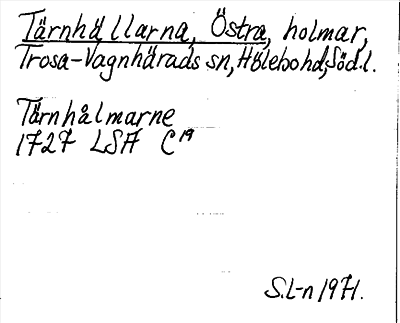 Tärnhållarna, Östra, holmar,
Trosa-Vagnhärads sn, Hölebo hd, Söd.l.
Tärnhålmarne
1727 LSA C19
S.L-n 1971.